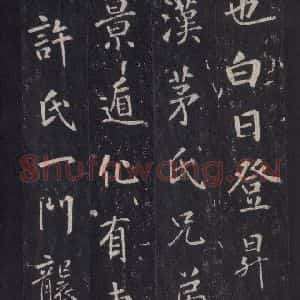 也白日登昇
漢茅氏兄弟
景遁化有
許氏一門襲
Shufawang.cn